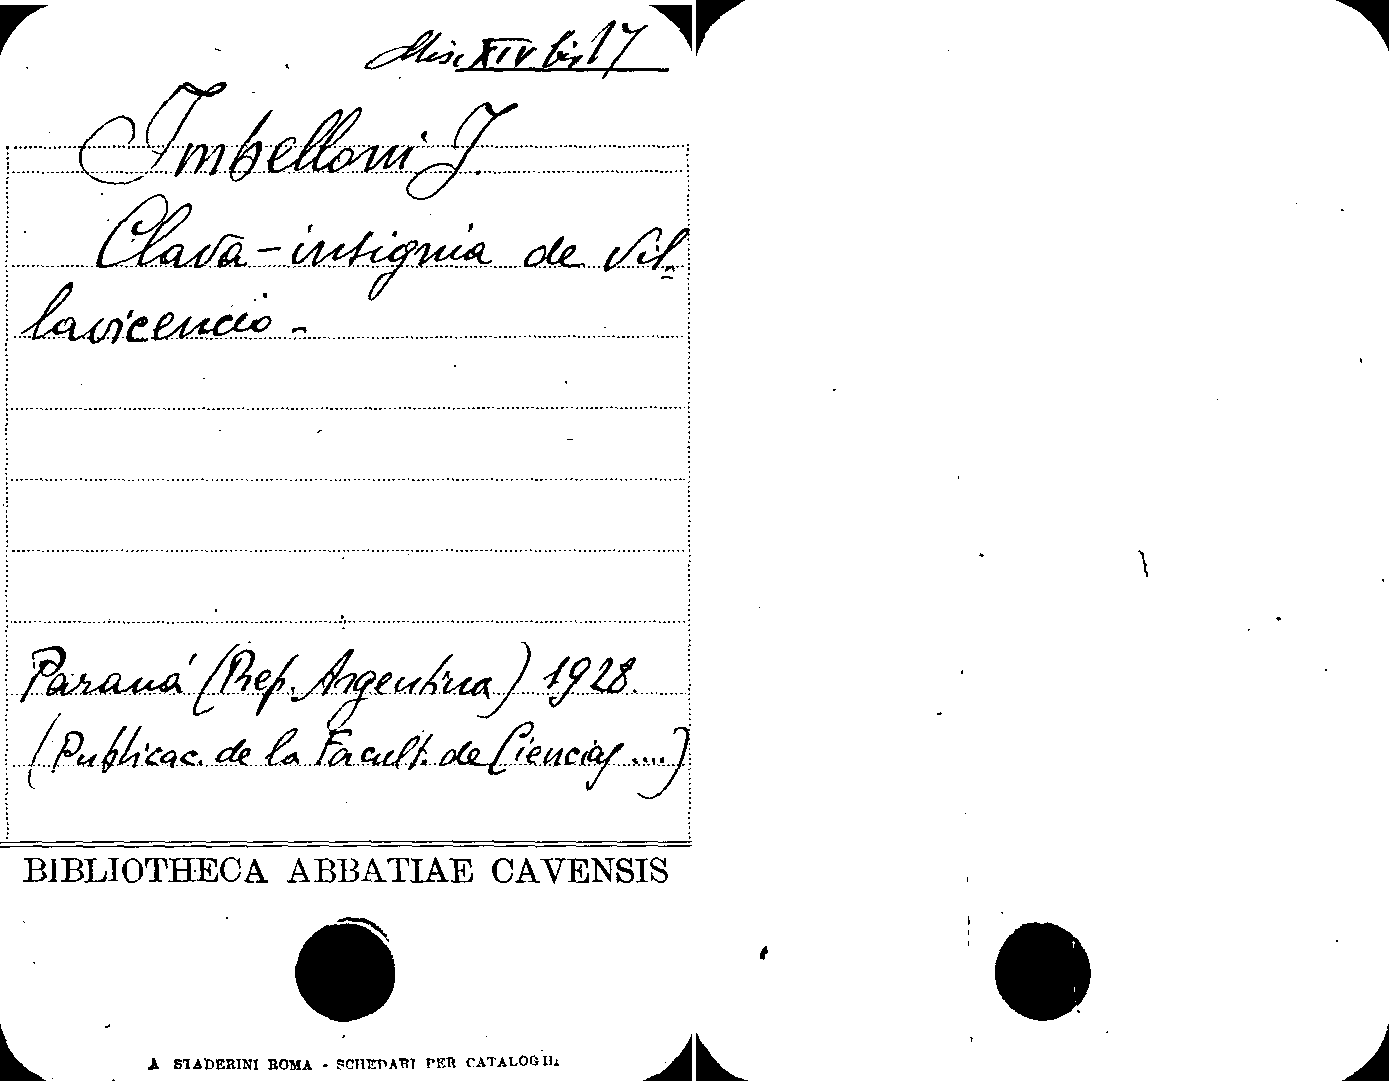 Misc XIV bis 17
Imbelloni J.
Clava-insignia de Vil=
lavicencio -
Paraná (Rep. Argentina) 1928.
(Publicac. de la Facult. de Ciencias ....)
BIBLIOTHECA ABBATIAE CAVENSIS
STADERINI ROMA - SCHEDARI PER CATALOGHI